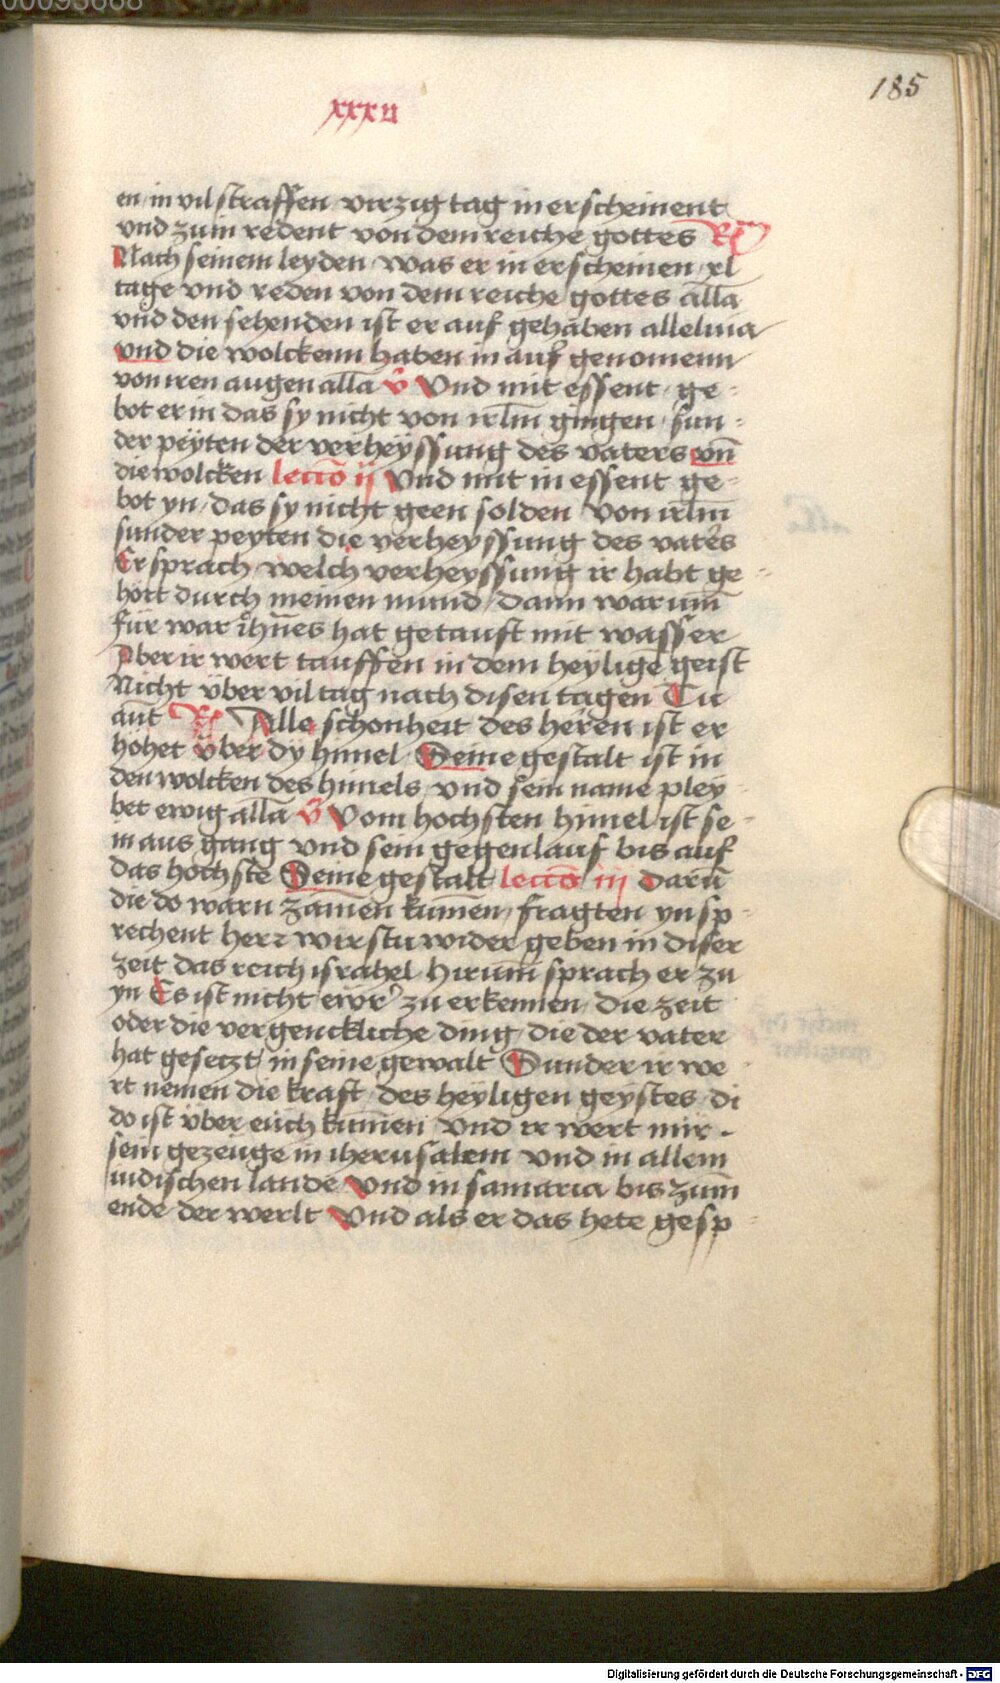 00095668
185
xxxij
en in vil straffen virzig tag in erscheinent
vnd zu in redent von dem reiche gottes R
Nach seinem leyden was er in erscheinen xl
tage vnd reden von dem reiche gottes alla
vnd den sehenden ist er auf gehaben alleluia
vnd die wolckenn haben in auf genomenn
von iren augen alla v Vnd mit essent ge-
bot er in das sy nicht von irlm gingen sun-
der peyten der verheyssung des vaters vn̄
die wolcken leccō ij Vnd mit in essent ge-
bot yn das sy nicht geen solden von irlm̄
sunder peyten die verheyssung des vaters
Er sprach welch verheyssung ir habt ge-
hort durch meinen mund dann warum̄
für war ihn̄es hat getauft mit wasser
Aber ir wert tauffen in dem heylige geist
Nicht über vil tag nach disen tagen Tu
aut̄ R Alle schonheit des heren ist er
hohet über dy himel Seine gestalt ist in
den wolcken des himels vnd sein name pley-
bet ewig alla V Vom hochsten himel ist se-
in aus gang vnd sein gegenlauf bis auf
das hochste Seine gestalt leccō iij darū
die do warn zamen kumen fragten yn sp-
rechent herr wirstu wider geben in diser
zeit das reich israhel hirum̄ sprach er zu
yn Es ist nicht ewr zu erkennen die zeit
oder die vergenckliche ding die der vater
hat gesetzt in seine gewalt Sunder ir we-
rt nemen die kraft des heyligen geystes di
do ist über euch kumen vnd ir wert mir
sein gezeuge in iherusalem vnd in allem
iudischen lande Vnd in samaria bis zum̄
ende der werlt Vnd als er das hete gesp-
Digitalisierung gefördert durch die Deutsche Forschungsgemeinschaft - DFG